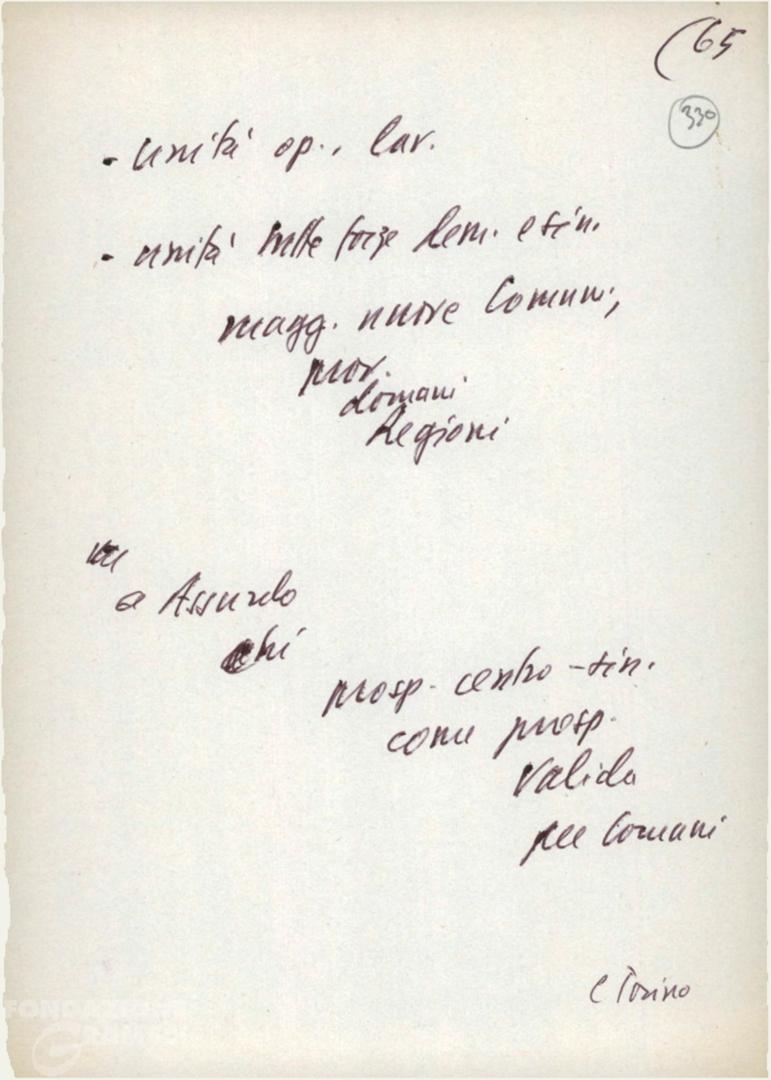 (65
330
- unità op., lav.
- unità tutte forze dem. e sin.
magg. nuove Comuni,
prov.
domani
Regioni
a Assurdo
chi
prosp. centro-sin.
come prosp.
valida
per domani
e Torino
FONDAZIONE
GRAMSCI